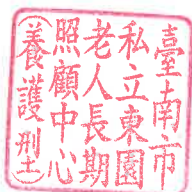 臺南市
私立東園
老人長期
照顧中心
(養護型)